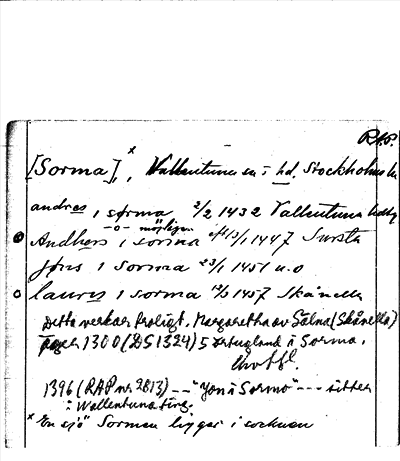 RAP.
[Sorma], x Vallentuna sn o hd, Stockholms län
andres i sorma 2/2 1432 Vallentuna
-o- möjligen
Andhers i sorma 13/1 1447
Jons i sorma 23/1 1451 u.o
laures i sorma 1457 Skånella
Detta verkar troligt. Margaretha av Sälna (Skånella)
1300 (DS 1324) 5 örtugland i Sorma.
1396 (RAP nr 2813) -- "Jon i Sormo" --- sitter
i Wallentuna
x En sjö Sorman ligger i socknen